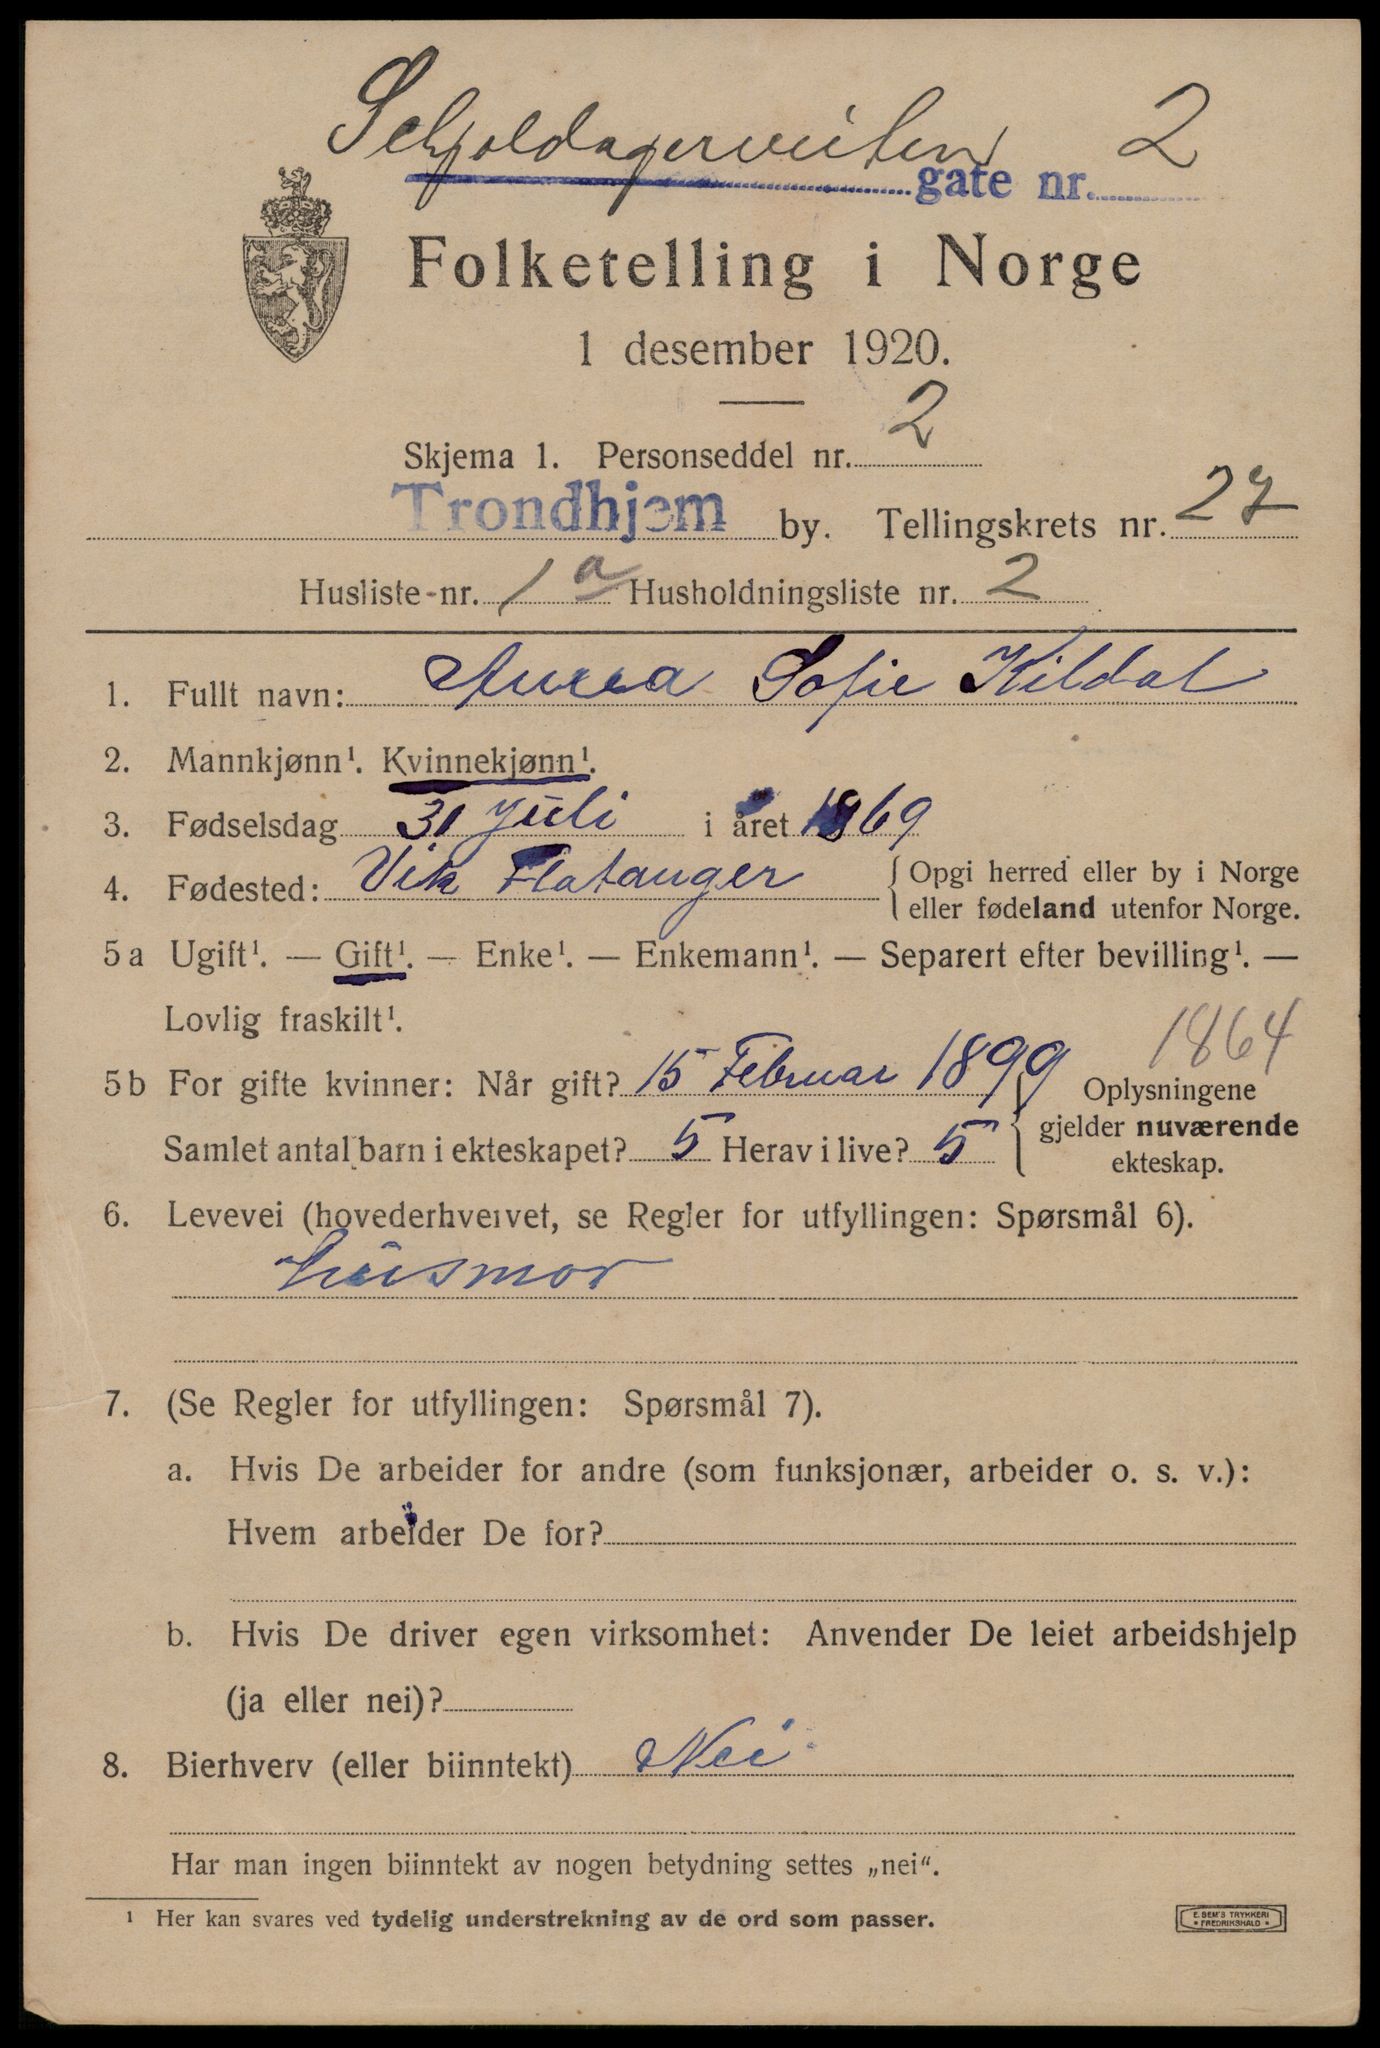 Schjoldagerveiten 2
gate nr.
Folketelling i Norge
1 desember 1920.
Skjema 1. Personseddel nr. 2
Trondhjem by. Tellingskrets nr. 27
Husliste-nr. 1 a Husholdningsliste nr. 2
1. Fullt navn: Anna Sofie Kildal
2. Mannkjønn¹. Kvinnekjønn¹.
3. Fødselsdag 31 Juli i året 1869
4. Fødested: Vik Flatanger { Opgi herred eller by i Norge
eller fødeland utenfor Norge.
5a Ugift¹. — Gift¹. — Enke¹. — Enkemann¹. — Separert efter bevilling¹. —
Lovlig fraskilt¹.
1864
5b For gifte kvinner: Når gift? 15 Februar 1899 Oplysningene
Samlet antal barn i ekteskapet? 5 Herav i live? 5 gjelder nuværende
ekteskap.
6. Levevei (hovederhvervet, se Regler for utfyllingen: Spørsmål 6).
husmor
7. (Se Regler for utfyllingen: Spørsmål 7).
a. Hvis De arbeider for andre (som funksjonær, arbeider o. s. v.):
Hvem arbeider De for?
b. Hvis De driver egen virksomhet: Anvender De leiet arbeidshjelp
(ja eller nei)?
8. Bierhverv (eller biinntekt) Nei
Har man ingen biinntekt av nogen betydning settes „nei“.
¹ Her kan svares ved tydelig understrekning av de ord som passer.
E. SEM'S TRYKKERI
* FREDRIKSHALD *